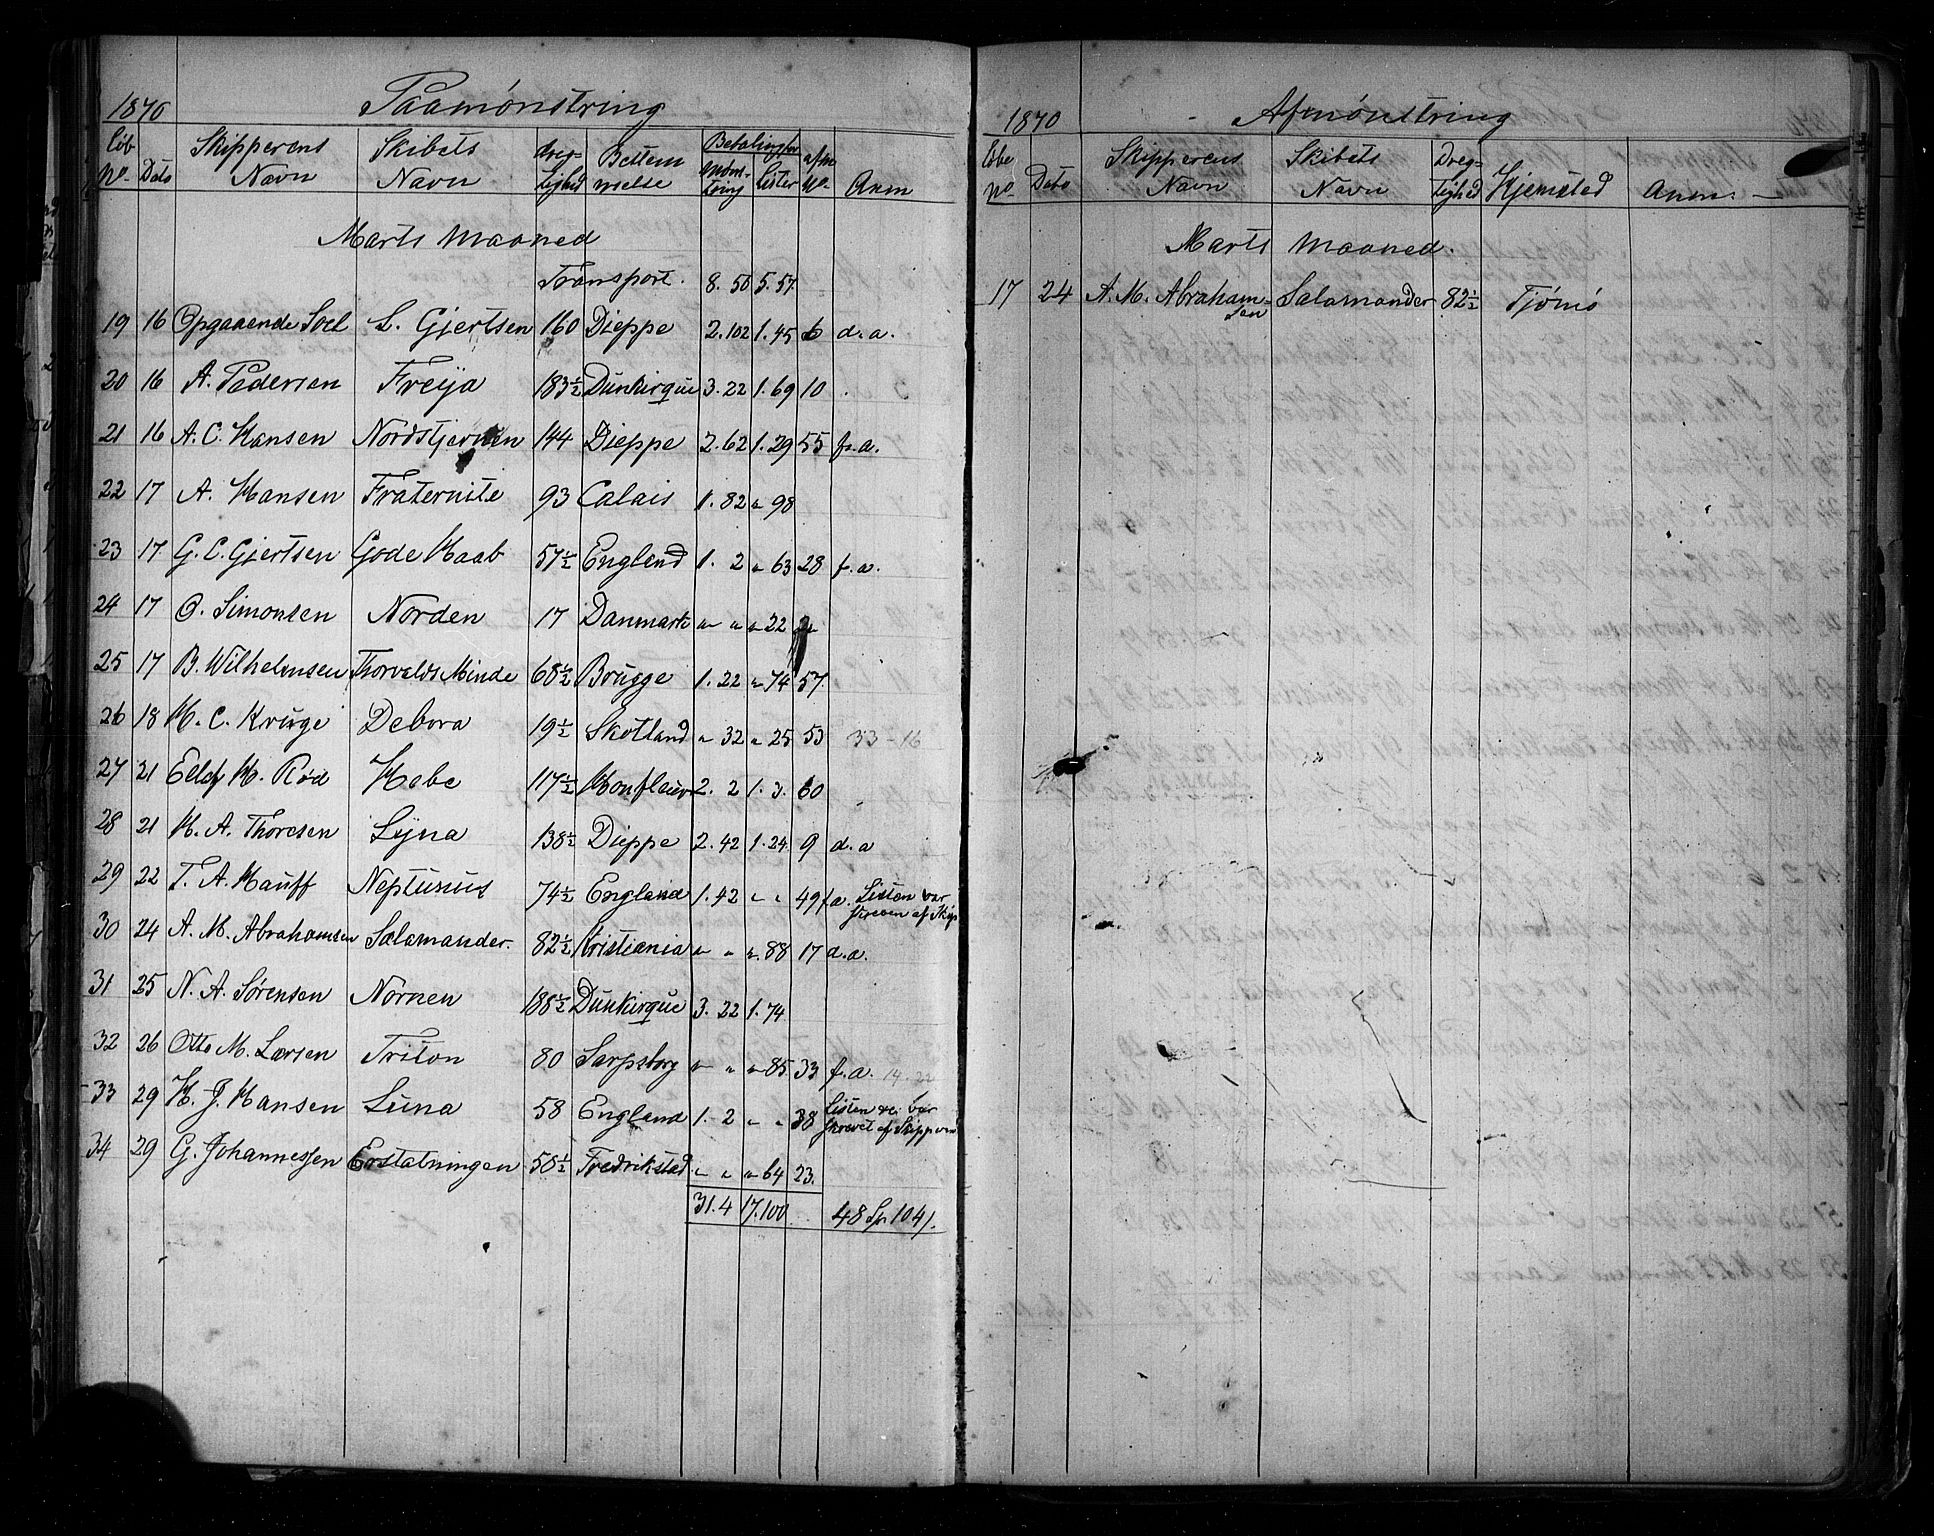 1870 Paamönstring
Löb No. Dato Skipperens Navn Skibets Navn Dreg-tighed Bestem melse Betaling for Mønstring Lister afm No. Anm
Marts Maaned
Transport. 8. 50 5. 57
19 16 Opgaaende Soel L. Gjertsen 160 Dieppe 2. 102 1. 45 6 d. a.
20 16 A. Pedersen Freija 183½ Dunkirque 3. 22 1. 69 10
21 16 A. C. Hansen Nordstjernen 144 Dieppe 2. 62 1. 29 55 f. a.
22 17 A. Hansen Fraternite 93 Calais 1. 82 " 98
23 17 G. C. Gjertsen Gode Haab 57½ England 1. 2 " 63 28 f. a.
24 17 O. Simonsen Norden 17 Danmark " " " 22
25 17 B. Wilhelmsen Thorvalds Minde 68½ Brugge 1. 22 " 74 57
26 18 H. C. Kruge Debora 19½ Skotland " 32 " 25 53 33-16
27 21 Ellef H. Röd Hebe 117½ Honfleur 2. 2 1. 3. 60
28 21 H. A. Thoresen Lyna 138½ Dieppe 2. 42 1. 24. 9 d. a
29 22 T. A. Hauff Neptunus 74½ England 1. 42 " " 49 f. a. Listen var
skreven af Skip
30 24 A. M. Abrahamsen Salamander. 82½ Kristiania " " " 88 17 d. a.
31 25 N. A. Sørensen Nornen 188½ Dunkirque 3. 22 1. 74
32 26 Otto M. Larsen Triton 80 Sarpsborg " " " 85. 33 f. a. 14. 22
33 29 H. J. Hansen Luna 58 England 1. 2 " " 38 Listen var
skrevet af Skipperen
34 29 G. Johannessen Erstatningen 58½ Fredrikstad " " " 64 23.
31. 4 17. 100 48 Sp 104 /.
1870 Afmönstring
Löbe No Dato Skipperens Navn Skibets Navn Dreg-tighed Hjemsted Anm.
Marts Maaned.
17 24 A. M. Abraham-sen Salamander 82½ Tjömö